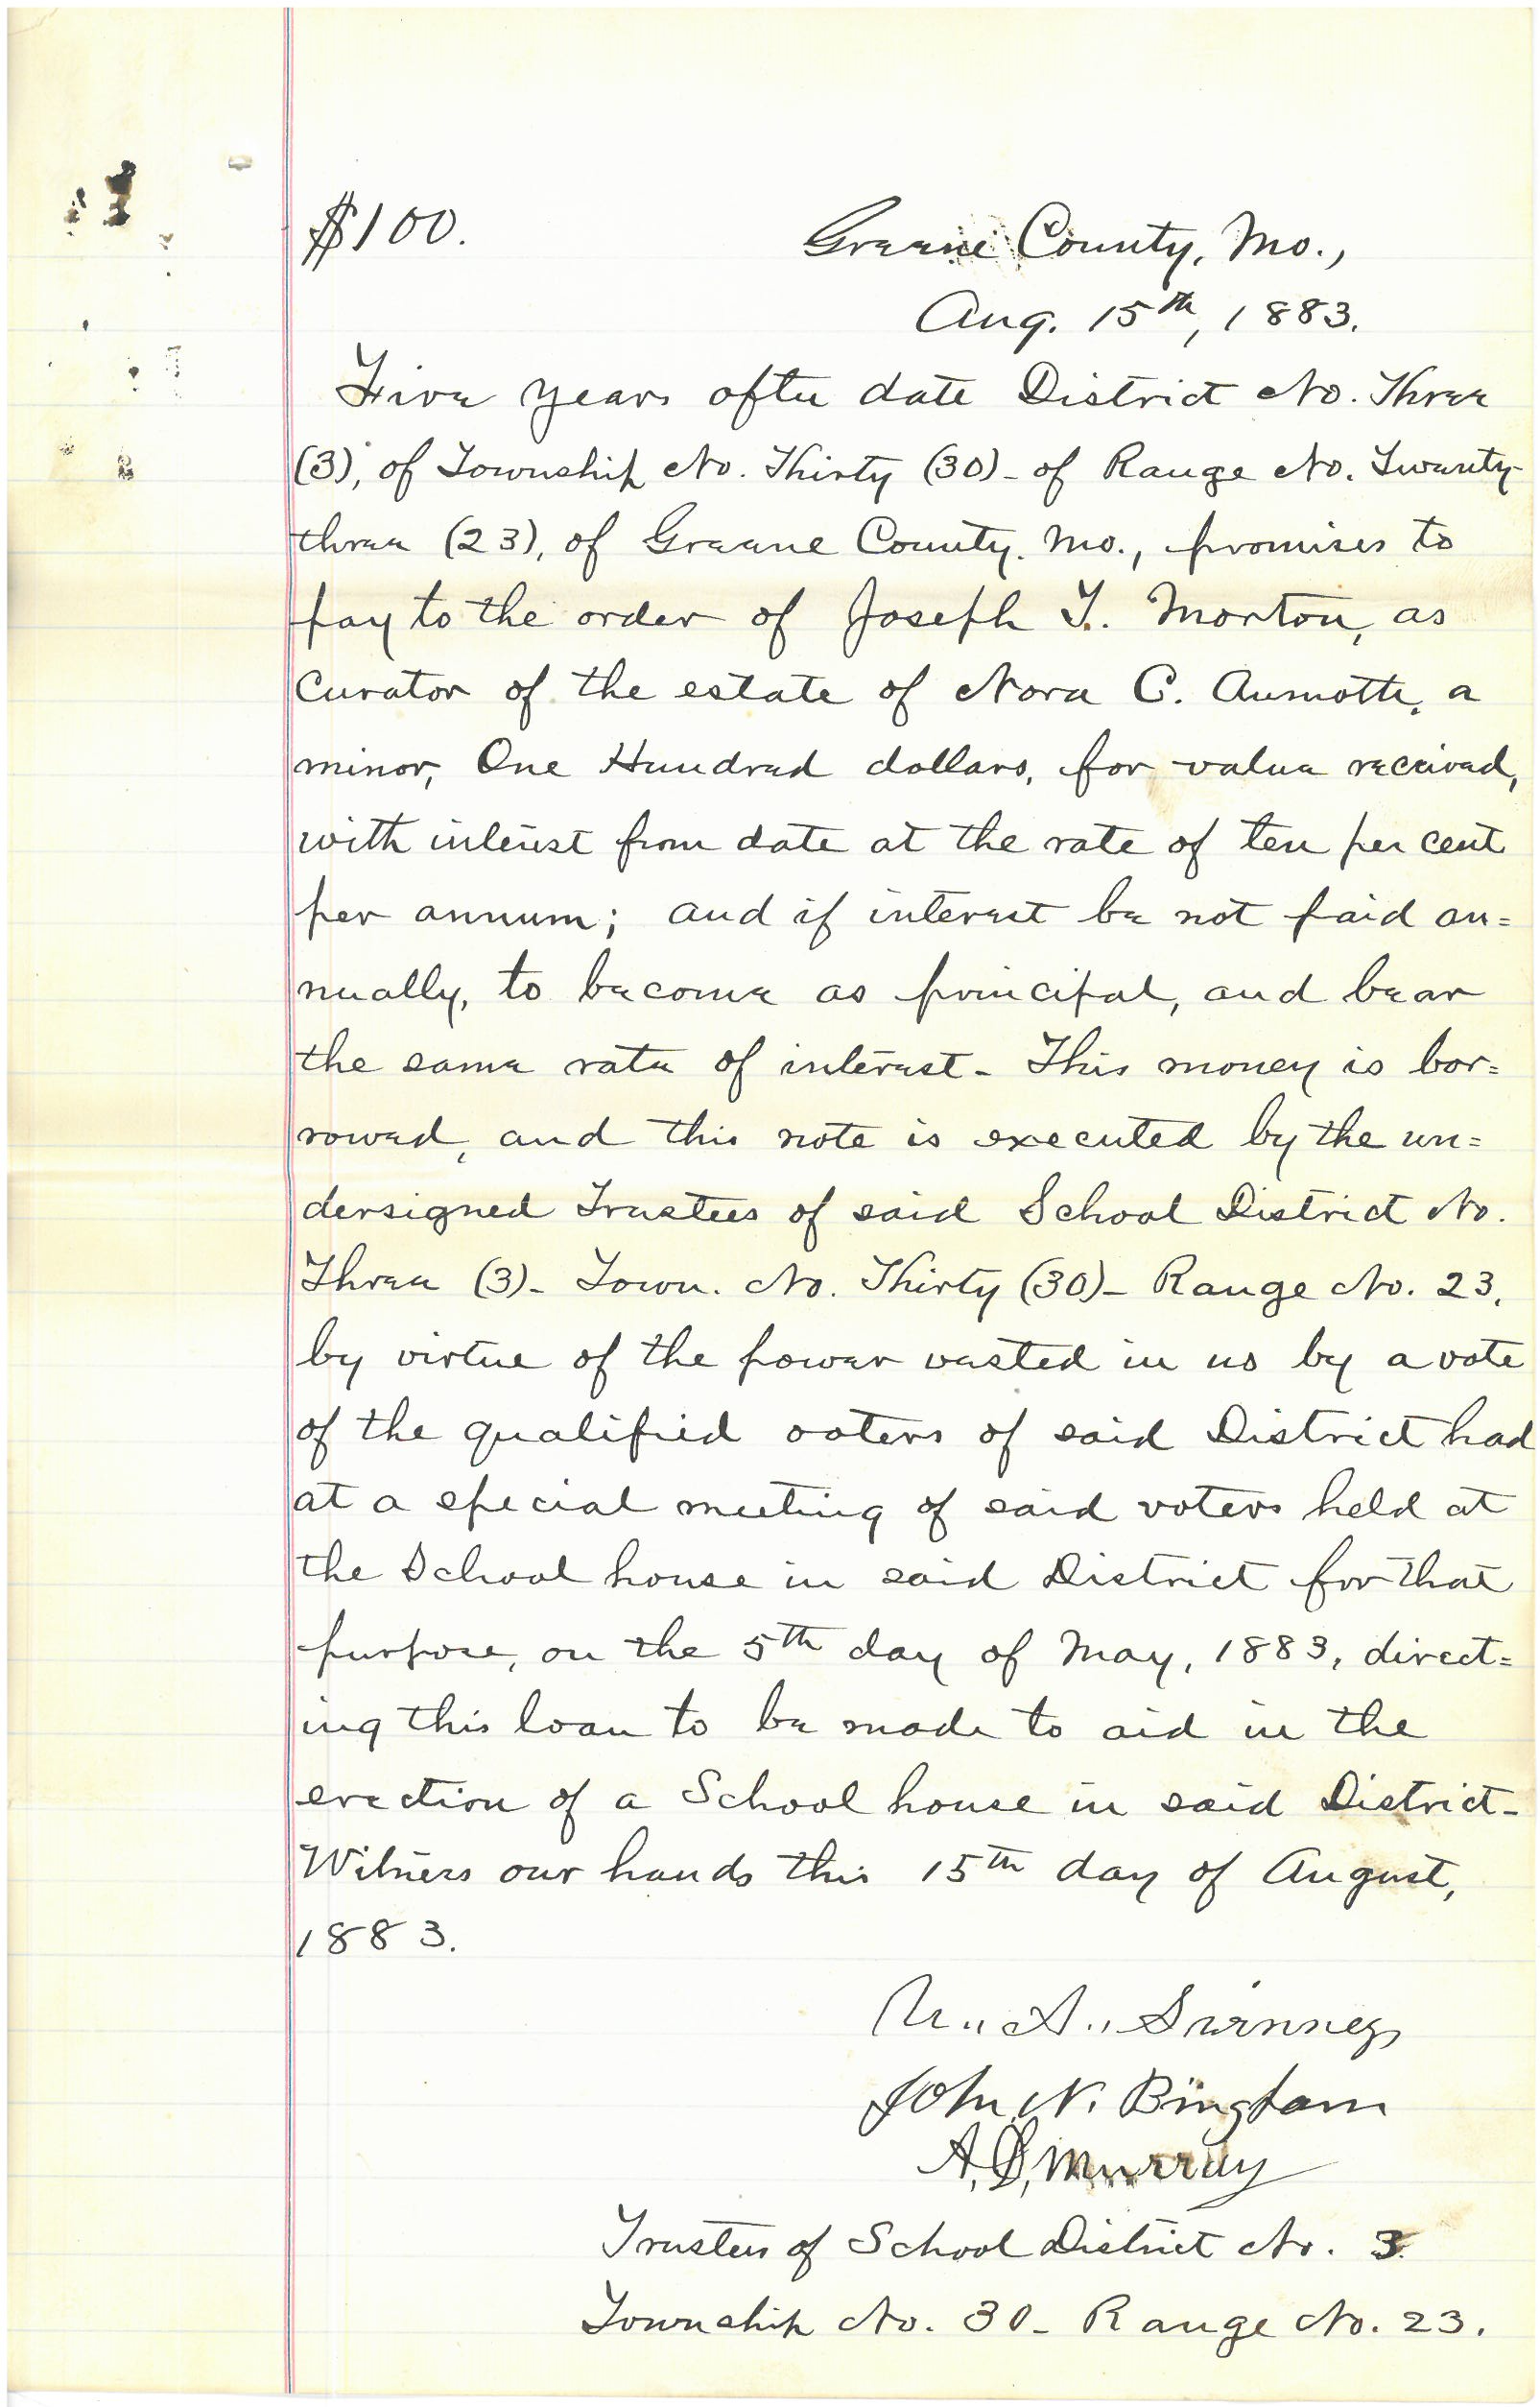 $100.
Greene County, Mo.,
Aug. 15th, 1883.
Five years after date District No. Three
(3), of Township No. Thirty (30) - of Range No. Twenty-
three (23), of Greene County, Mo., promises to
pay to the order of Joseph T. Morton, as
Curator of the estate of Nora C. Aumotte, a
minor, One Hundred dollars, for value received,
with interest from date at the rate of ten per cent
per annum; and if interest be not paid an=
nually, to become as principal, and bear
the same rate of interest - This money is bor=
rowed, and this note is executed by the un=
dersigned Trustees of said School District No.
Three (3) - Town. No. Thirty (30) - Range No. 23,
by virtue of the power vested in us by a vote
of the qualified voters of said District had
at a special meeting of said voters held at
the School house in said District for that
purpose, on the 5th day of May, 1883, direct=
ing this loan to be made to aid in the
erection of a School house in said District -
Witness our hands this 15th day of August,
1883.
A. Swinney
John N. Bingham
A. D. Murray
Trustees of School District No. 3.
Township No. 30 - Range No. 23.